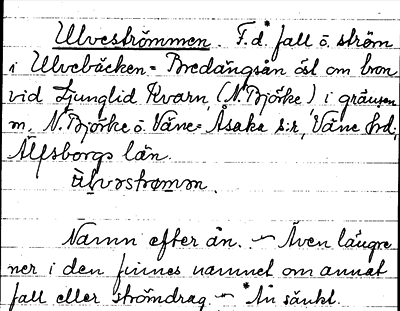 Ulveströmmen. F.d.* fall o. ström
i Ulvebäcken = Bredängsån öst om bron
vid Ljunglid Kvarn, (N. Björke) i gränsen
m. N. Björke o. Väne-Åsaka s:r, Väne hd;
Älfsborgs län.
ùlvəstrəmən.
Namn efter ån. – Även längre
ner i den finnes namnet om annat
fall eller strömdrag. – *Ån sänkt.